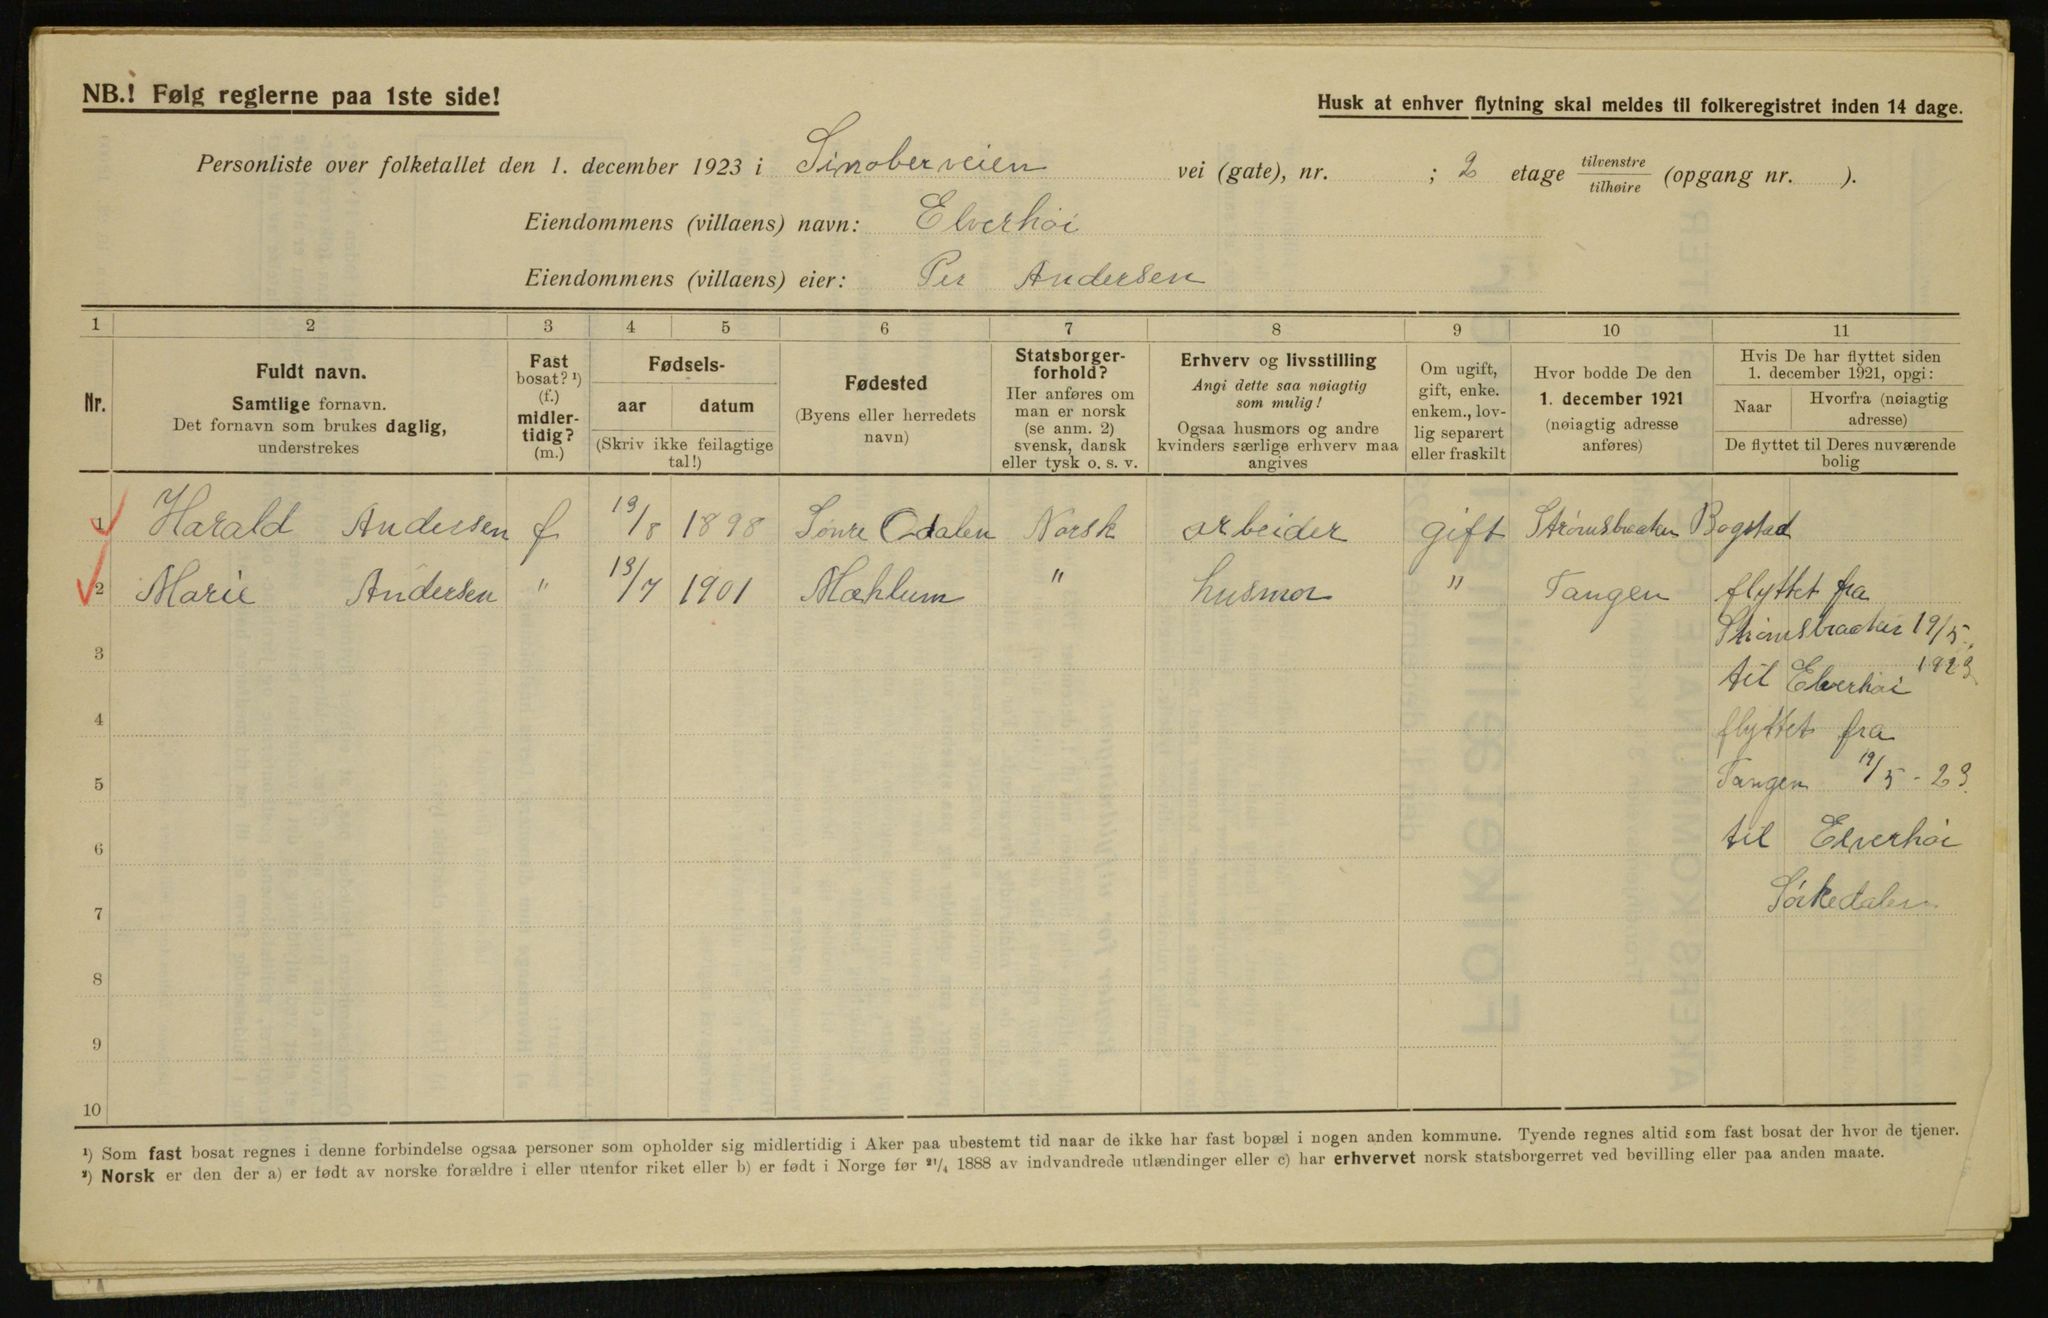 NB.! Følg reglerne paa 1ste side!
Husk at enhver flytning skal meldes til folkeregistret inden 14 dage.
Personliste over folketallet den 1. december 1923 i Sinoberveien vei (gate), nr. ; 2 etage tilvenstre/tilhøire (opgang nr. ).
Eiendommens (villaens) navn: Elverhöi
Eiendommens (villaens) eier: Per Andersen
1 2 3 4 5 6 7 8 9 10 11
Nr.
Fuldt navn.
Samtlige fornavn.
Det fornavn som brukes daglig,
understrekes
Fast
bosat? ¹)
(f.)
midler-
tidig?
(m.)
Fødsels-
aar datum
(Skriv ikke feilagtige
tal!)
Fødested
(Byens eller herredets
navn)
Statsborger-
forhold?
Her anføres om
man er norsk
(se anm. 2)
svensk, dansk
eller tysk o. s. v.
Erhverv og livsstilling
Angi dette saa nøiagtig
som mulig!
Ogsaa husmors og andre
kvinders særlige erhverv maa
angives
Om ugift,
gift, enke.
enkem., lov-
lig separert
eller fraskilt
Hvor bodde De den
1. december 1921
(nøiagtig adresse
anføres)
Hvis De har flyttet siden
1. december 1921, opgi:
Naar
Hvorfra (nøiagtig
adresse)
De flyttet til Deres nuværende
bolig
1 Harald Andersen f 19/8 1898 Sönre Odalen Norsk arbeider gift Strömsbraaten Bogstad
2 Marie Andersen " 13/7 1901 Mæhlum " husmor " Tangen flyttet fra
3 Strömsbraaten 19/5
til Elverhöi 1923
4 flyttet fra
5 Tangen 19/5 - 23.
6 til Elverhöi
7 Sörkedalen
8
9
10
¹) Som fast bosat regnes i denne forbindelse ogsaa personer som opholder sig midlertidig i Aker paa ubestemt tid naar de ikke har fast bopæl i nogen anden kommune. Tyende regnes altid som fast bosat der hvor de tjener.
²) Norsk er den der a) er født av norske forældre i eller utenfor riket eller b) er født i Norge før ²¹/₄ 1888 av indvandrede utlændinger eller c) har erhvervet norsk statsborgerret ved bevilling eller paa anden maate.